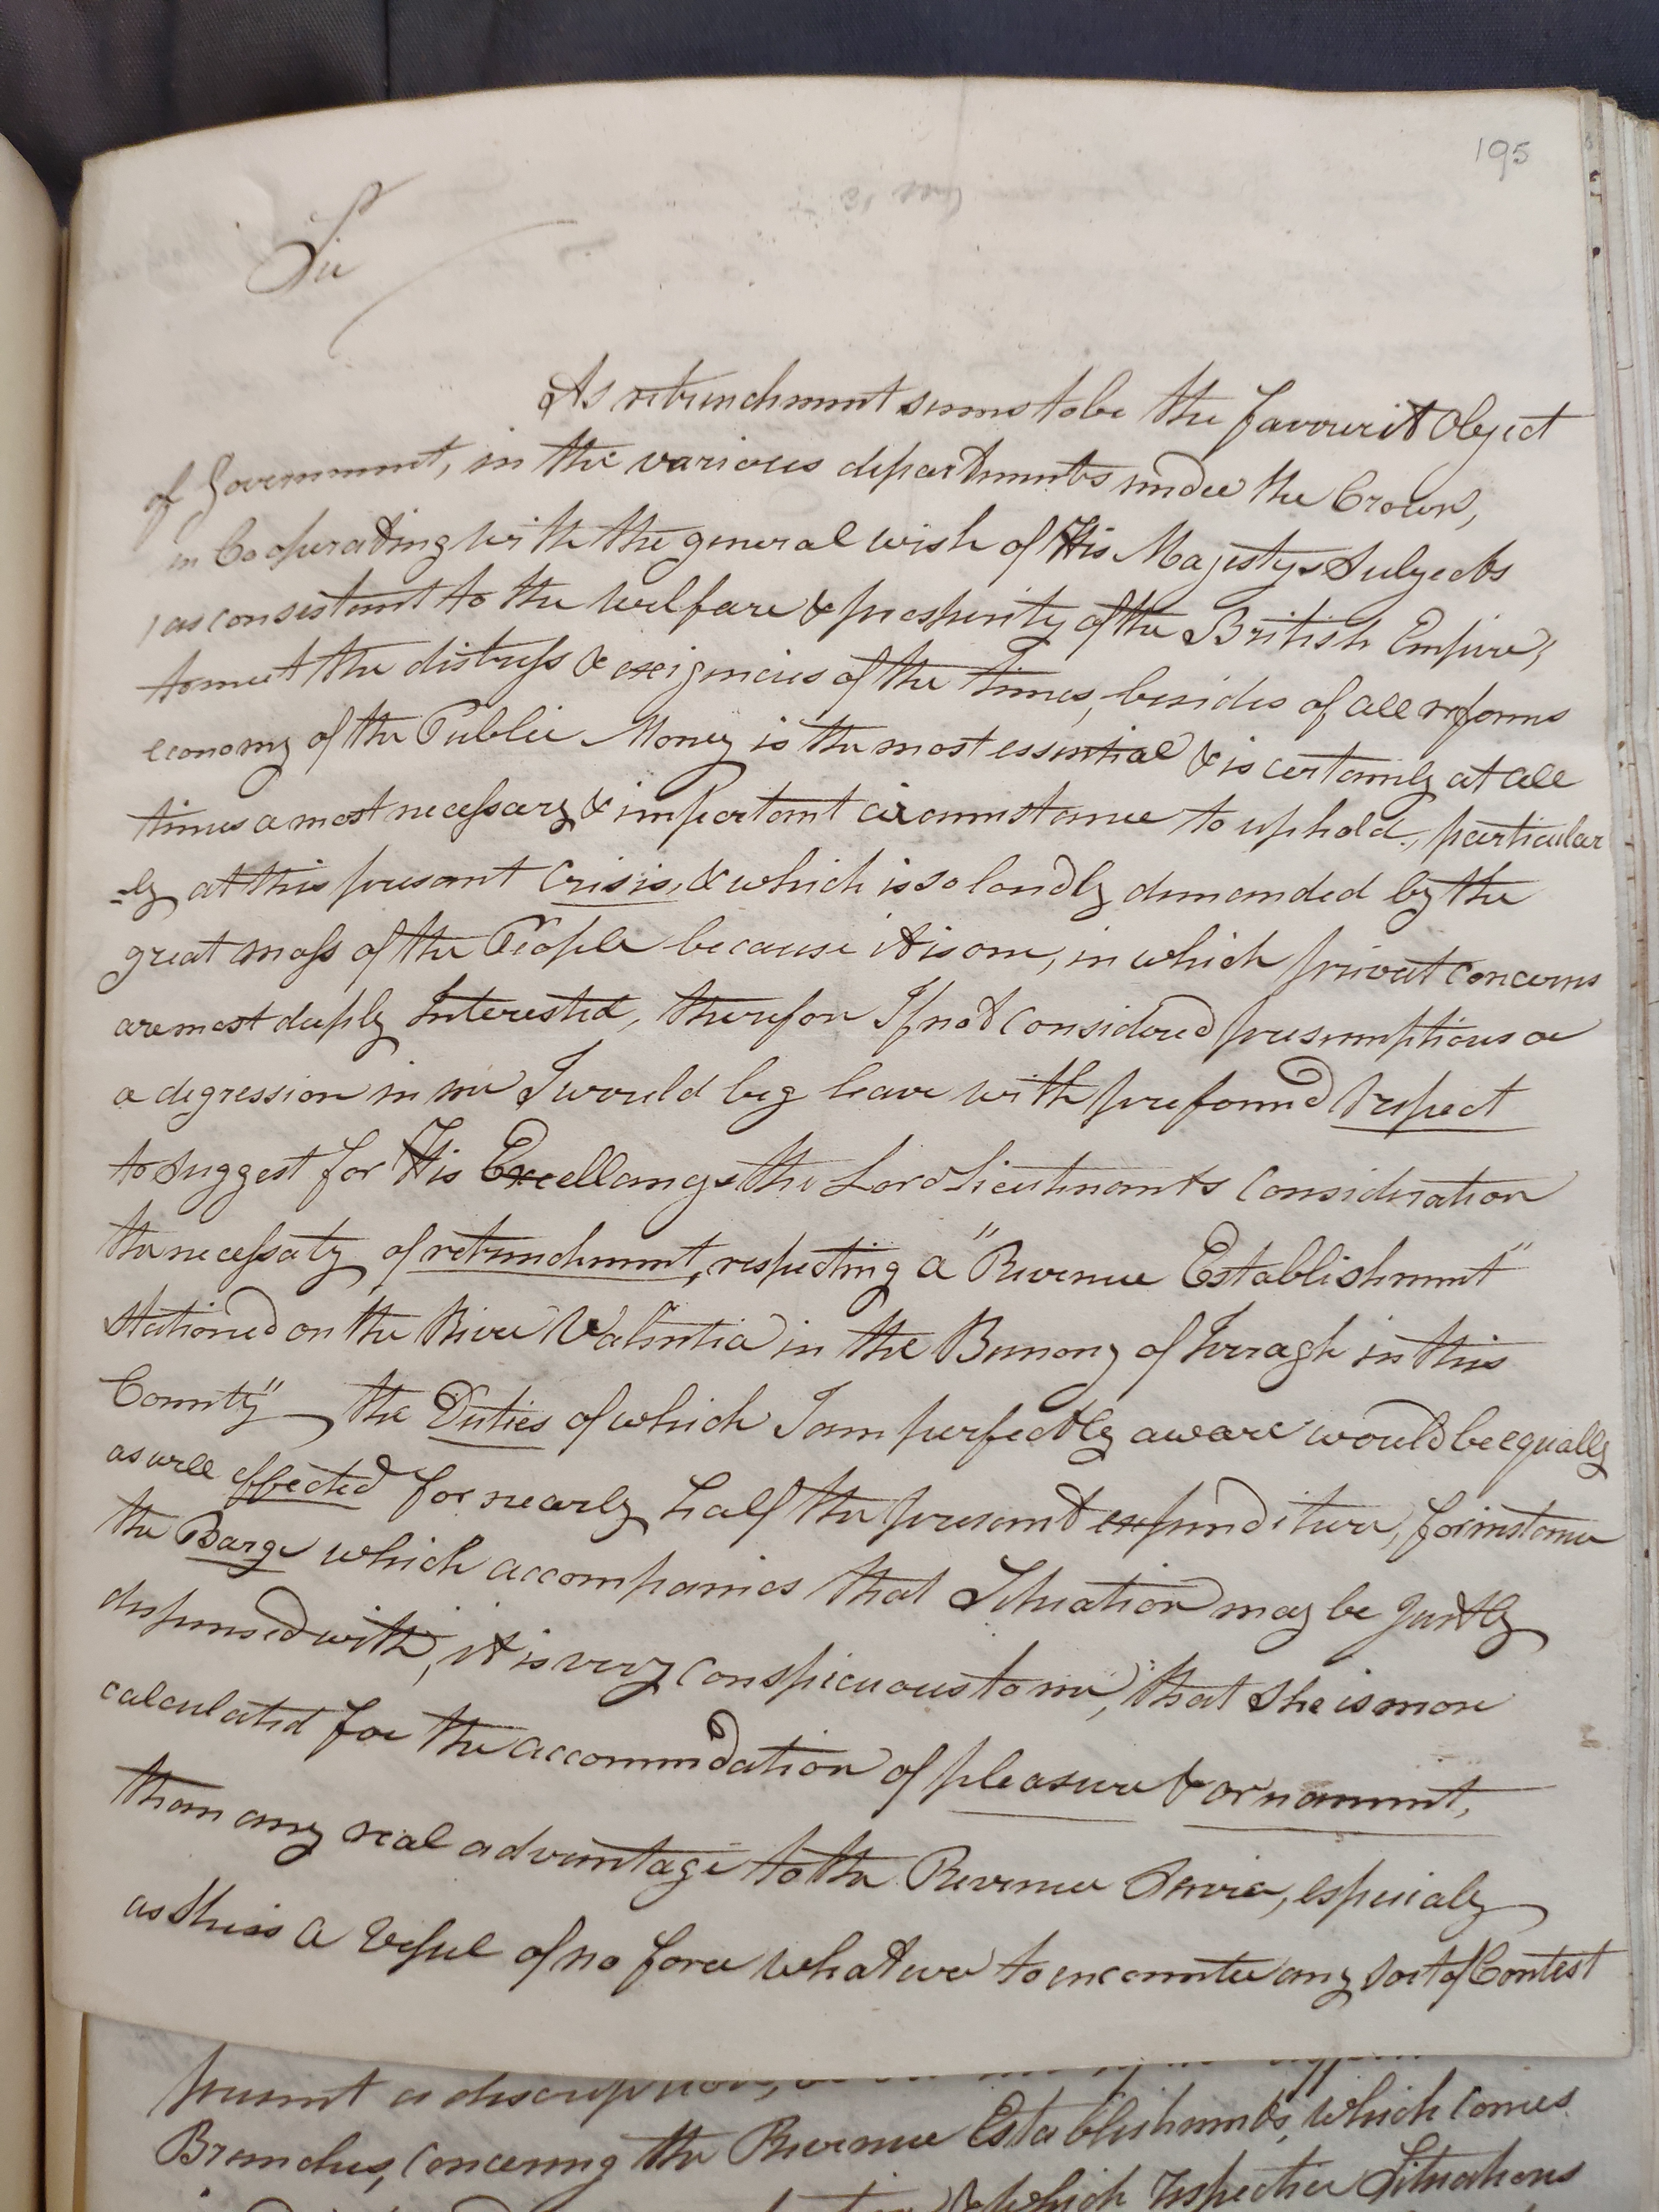 195
Sir
As retrenchment seems to be the favourit Object
of Government, in the various departments under the Crown,
in Cooperating with the general wish of His Majestys Subjects
/as consistent to the welfare & prosperity of the British Empire/
to meet the distress & exigencies of the times, besides of all reforms
economy of the Public Money is the most essential & is certainly at all
times a most necessary & important circumstance to uphold, particular
-ly at this present Crisis, & which is so loudly demanded by the
great mass of the People because it is one, in which privat concerns
are most deeply Interested, therefore If not considered presumptious or
a degression in me I would beg leave with profound respect
to suggest for His Excellancys the Lord Lieutenants Consideration
the necessaty of retrenchment, respecting a "Revenue Establishment"
Stationed on the River Valentia in the Barrony of Iveragh in this
County" the Duties of which I am perfectly aware would be equally
as well effected for nearly half the present expenditure, for instance
the Barge which accompanies that Situation may be justly
dispensed with, it is very conspicuous to me, that she is more
calculated for the accommodation of pleasure & ornament,
than any real advantage to the Revenue Service, especialy
as she is a Vessel of no force whatever to encounter any sort of Contest
present a discription,
Branches, concerning the Revenue Establishments, which comes
& which respective Situations